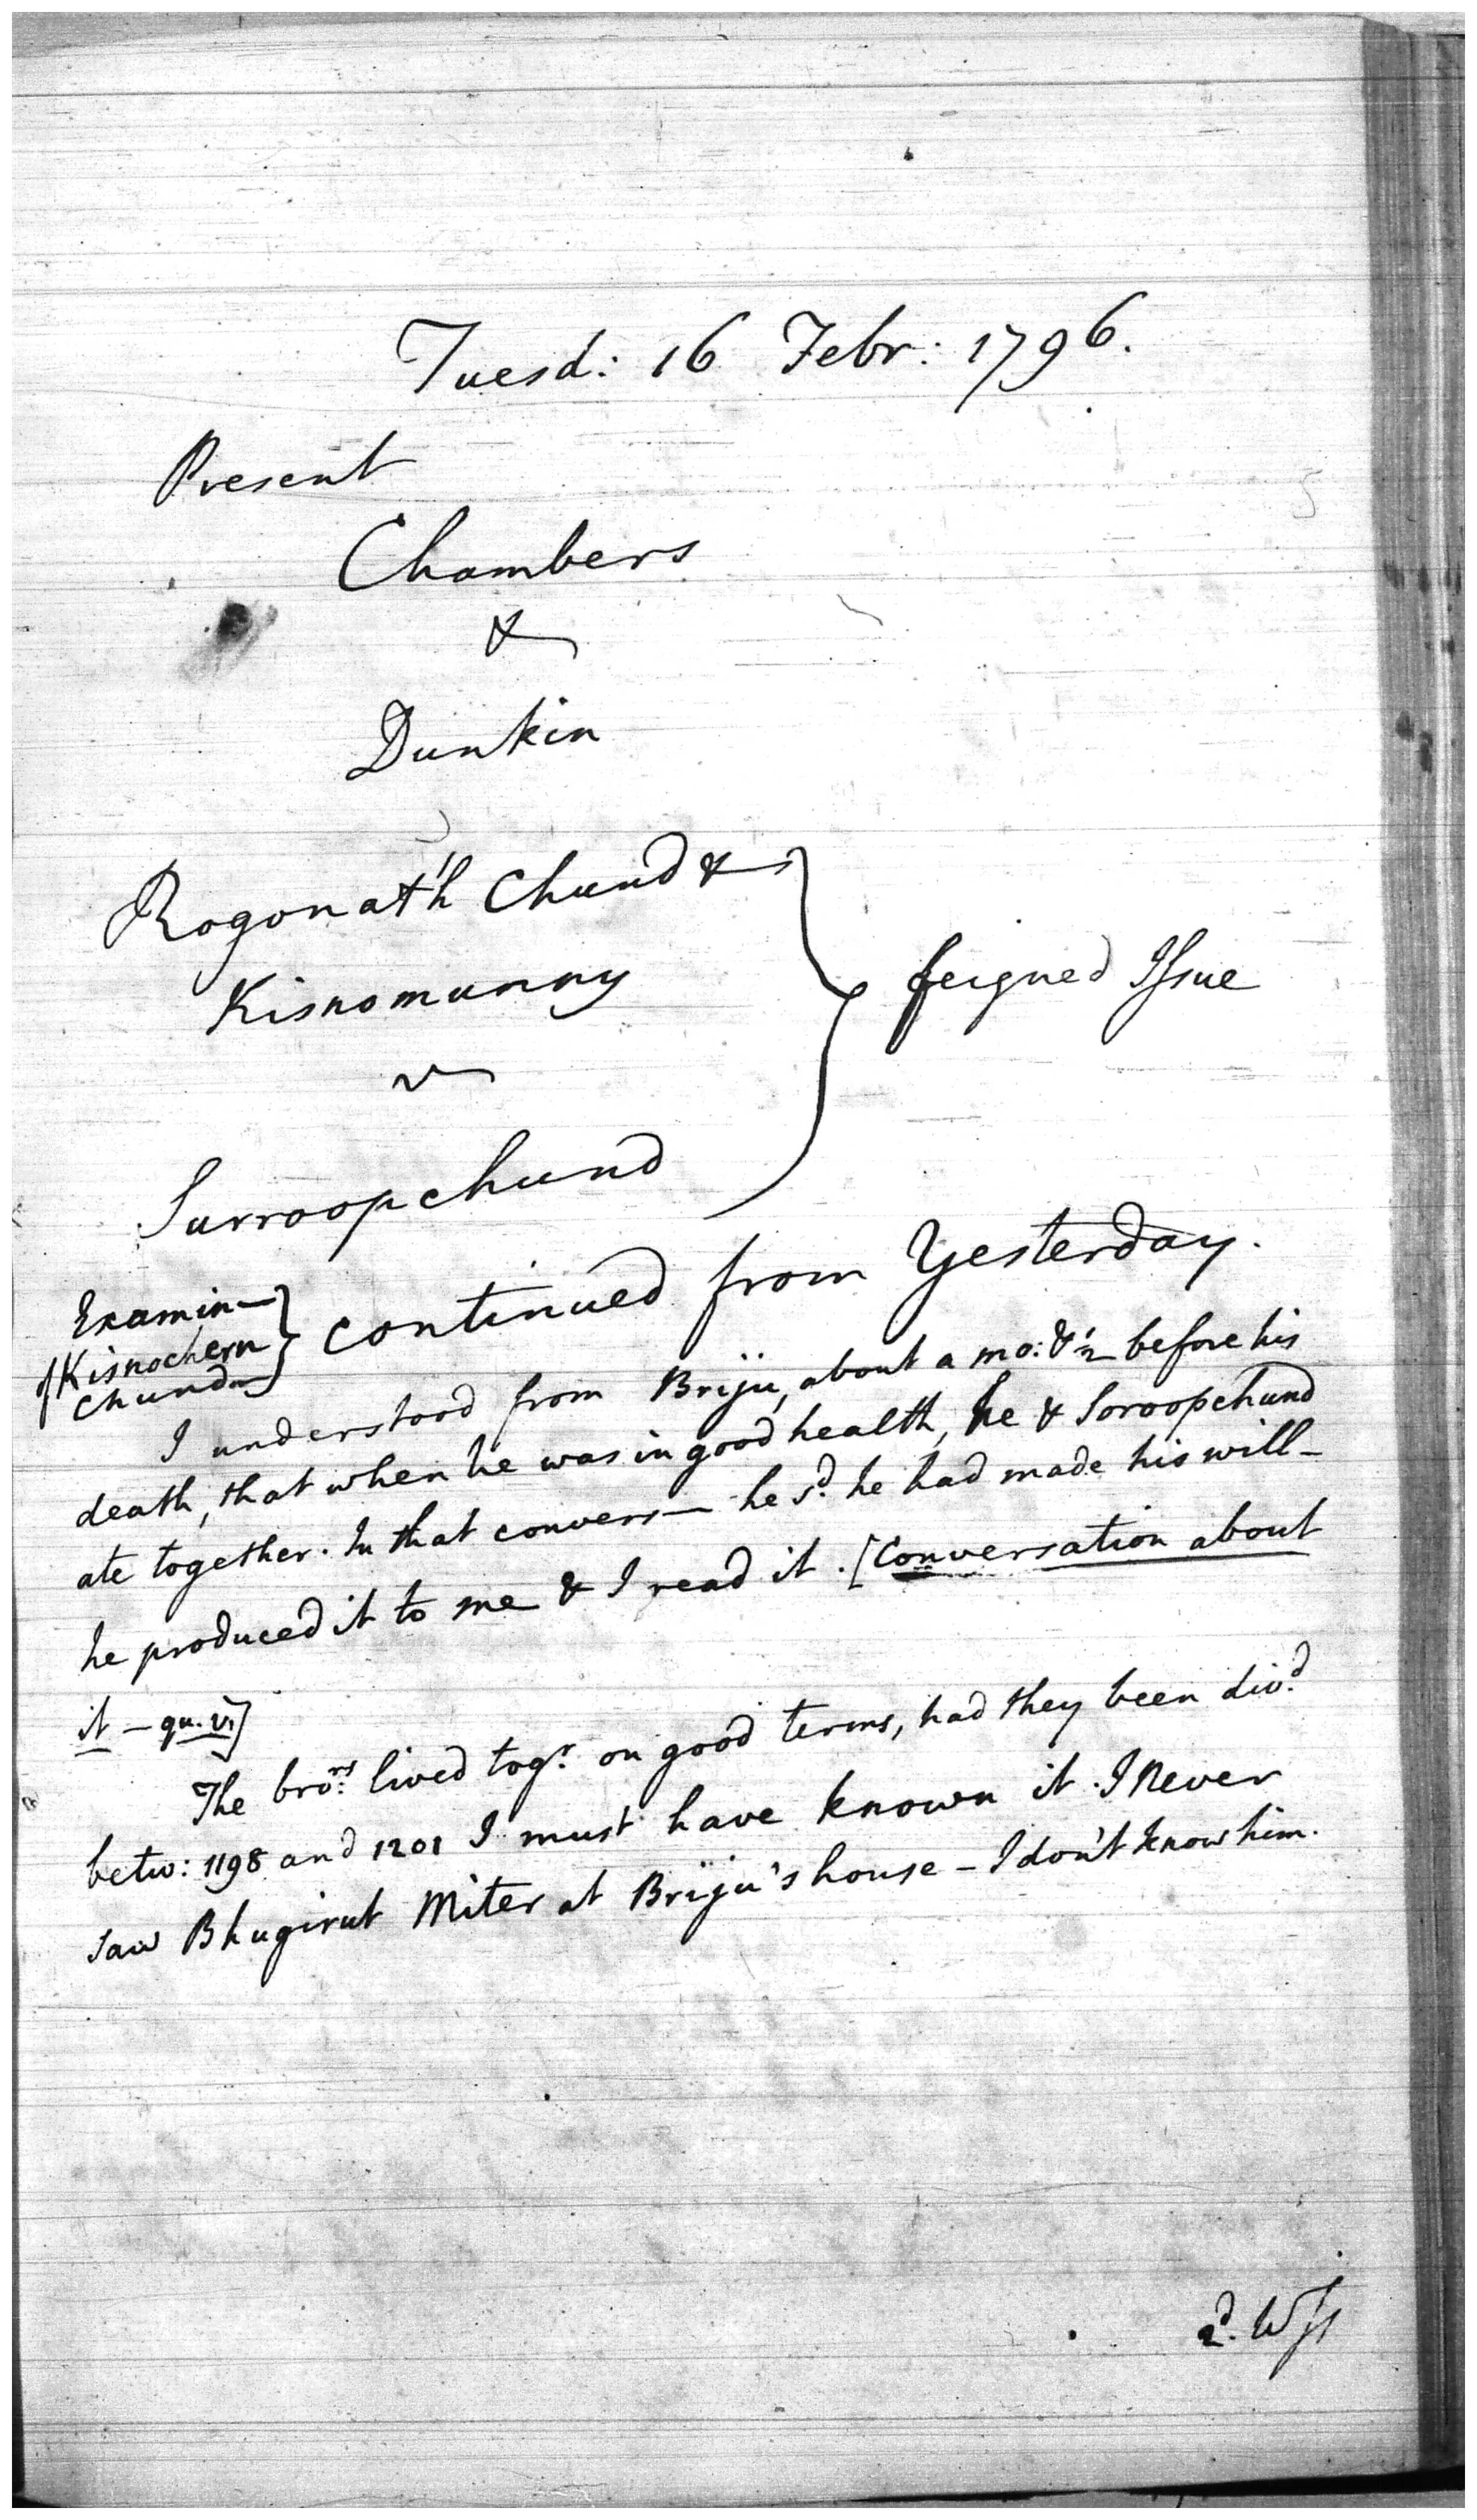 Tuesd: 16 Febr: 1796.
Present
Chambers
&
Dunkin
Rogonath Chund &
Kisnomunny
v
Surroopchund
feigned Issue
Examin—
of Kisnochern
Chund
continued from Yesterday.
I understood from Briju, about a mo: & ½ before his
death, that when he was in good health, he & Soroopchund
ate together. In that convers— he sd. he had made his will—
he produced it to me & I read it. [Conversation about
it — qu. v.]
The brors. lived togr. on good terms, had they been divd.
betw: 1198 and 1201 I must have known it. I never
saw Bhugirut Miter at Briju's house — I don't know him.
2d. Wss